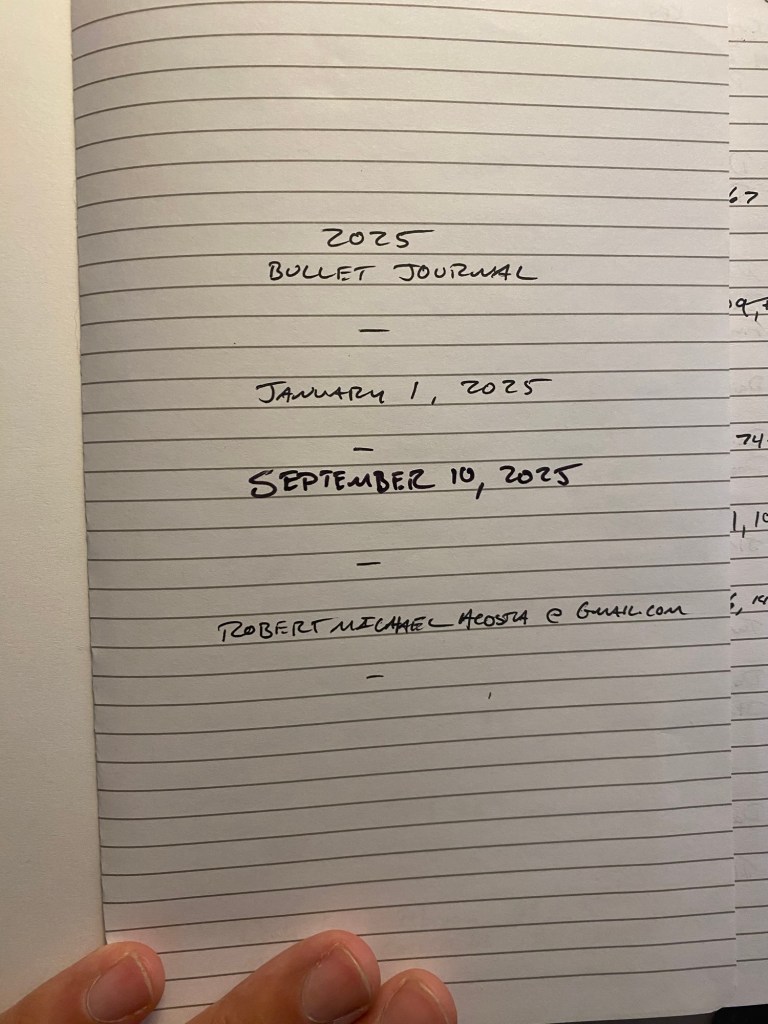 2025
BULLET JOURNAL
—
JANUARY 1, 2025
—
SEPTEMBER 10, 2025
—
ROBERTMICHAELACOSTA@GMAIL.COM
—
67
74
1, 10